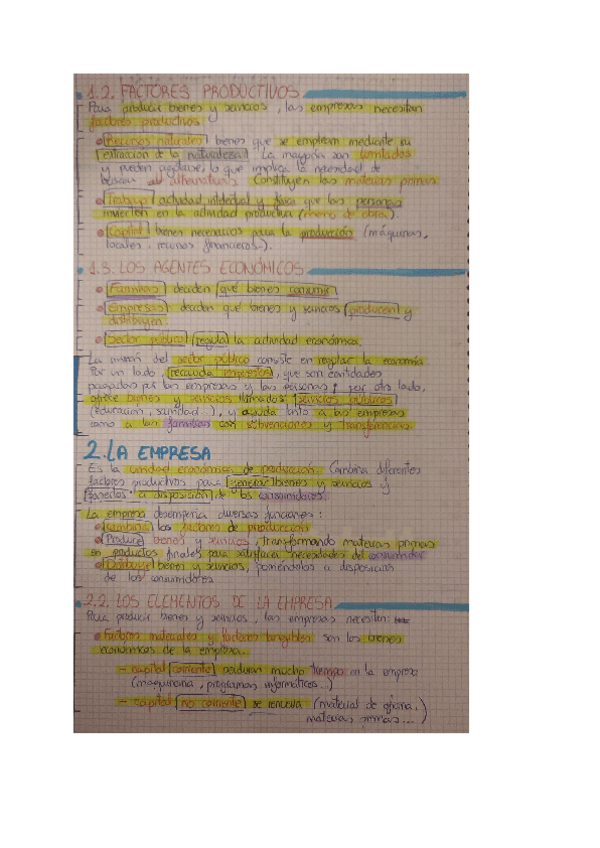 1.2. FACTORES PRODUCTIVOS
Para producir bienes y servicios, las empresas necesitan
factores productivos
Recursos naturales bienes que se emplean mediante su
extracción de la naturaleza. La mayoría son limitados
y pueden agotarse, lo que implica la necesidad de
buscar alternativas. Constituyen las materias primas
Trabajo actividad intelectual y física que las personas
invierten en la actividad productiva (mano de obra)
Capital bienes necesarios para la producción (máquinas,
locales, recursos financieros..).
1.3. LOS AGENTES ECONÓMICOS
Familias deciden qué bienes consumir
Empresas deciden qué bienes y servicios producen y
distribuyen.
Sector público regula la actividad económica.
La misión del sector público consiste en regular la economía.
Por un lado, recauda impuestos, que son cantidades
pagadas por las empresas y las personas; por otro lado,
ofrece bienes y servicios llamados servicios públicos
(educación, sanidad...), y ayuda tanto a las empresas
como a las familias con subvenciones y transferencias
2. LA EMPRESA
Es la unidad económica de producción. Combina diferentes
factores productivos para generar bienes y servicios y
ponerlos a disposición de los consumidores.
La empresa desempeña diversas funciones:
Combina los factores de producción
Produce bienes y servicios, transformando materias primas
en productos finales para satisfacer necesidades del consumidor
Distribuye bienes y servicios, poniéndolos a disposición
de los consumidores
2.2. LOS ELEMENTOS DE LA EMPRESA
Para producir bienes y servicios, las empresas necesitan:
Factores materiales y factores tangibles son los bienes
económicos de la empresa.
- capital corriente perduran mucho tiempo en la empresa
(maquinaria, programas informáticos..)
- capital no corriente se renueva (material de oficina,
materias primas...)